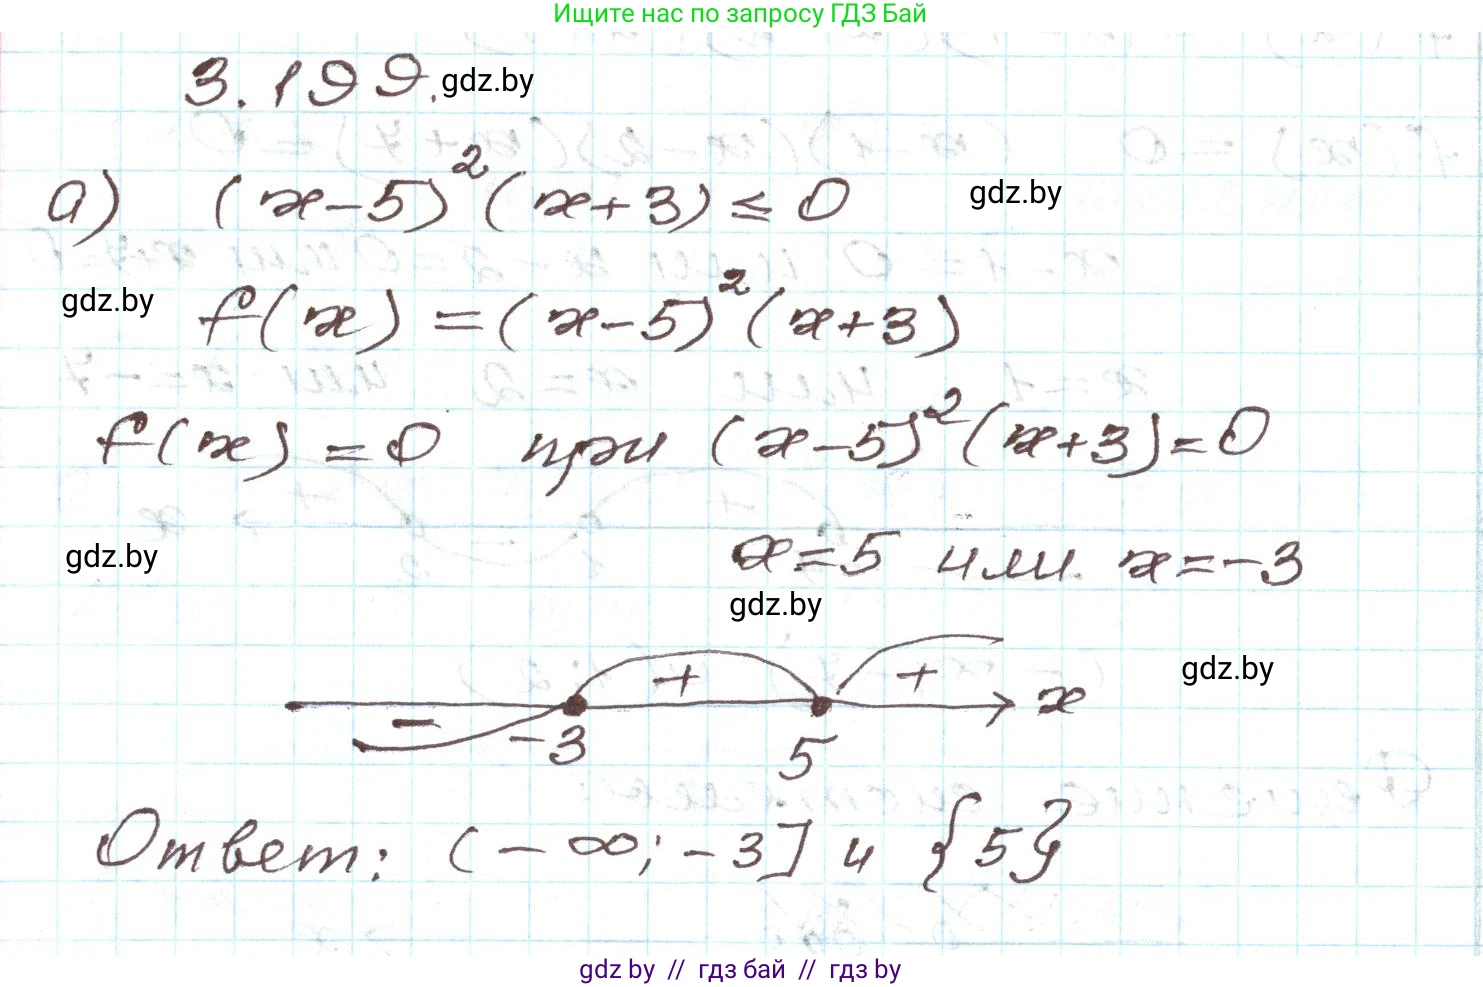 Ищите нас по запросу ГДЗ Бай
3.199. gdz.by
а) (x-5)²(x+3) ≤ 0 gdz.by
gdz.by f(x) = (x-5)²(x+3)
f(x) = 0 при (x-5)²(x+3) = 0
gdz.by x = 5 или x = -3
gdz.by
gdz.by
- + + x
-3 5
Ответ: (-∞; -3] и {5}
gdz.by // гдз бай // гдз by